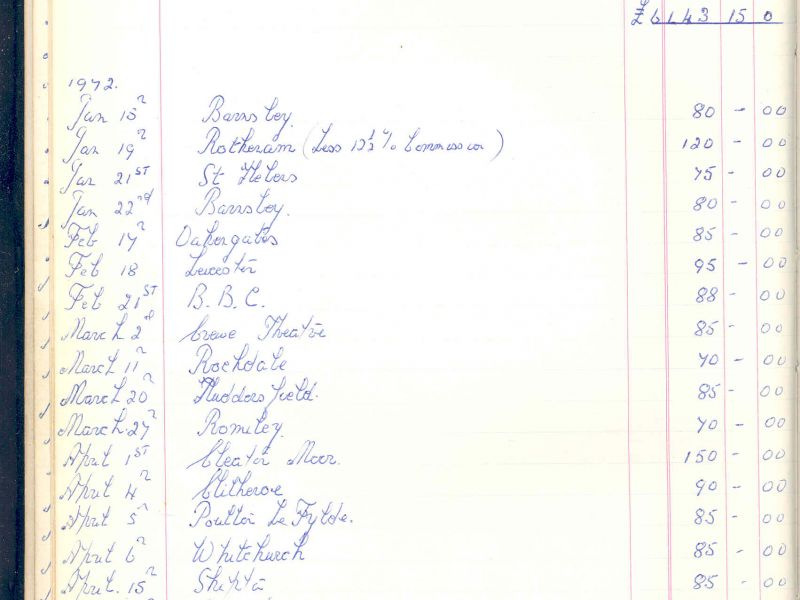 £6143 15 0
1972.
Jan 15 Barnsley 80 - 00
Jan 19 Rotheram (Less 12½% Commission) 120 - 00
Jan 21ST St Helens 75 - 00
Jan 22nd Barnsley. 80 - 00
Feb 17 85 - 00
Feb 18 Leicester 95 - 00
Feb 21ST B.B.C. 88 - 00
March 2nd Crewe Theatre 85 - 00
March 11 Rochdale 70 - 00
March 20 Huddersfield. 85 - 00
March 27 Romiley. 70 - 00
April 1ST Cleator Moor. 150 - 00
April 4 Clitheroe 90 - 00
April 5 Poulton Le Fylde. 85 - 00
April 6 Whitchurch 85 - 00
April. 15 Shipton 85 - 00